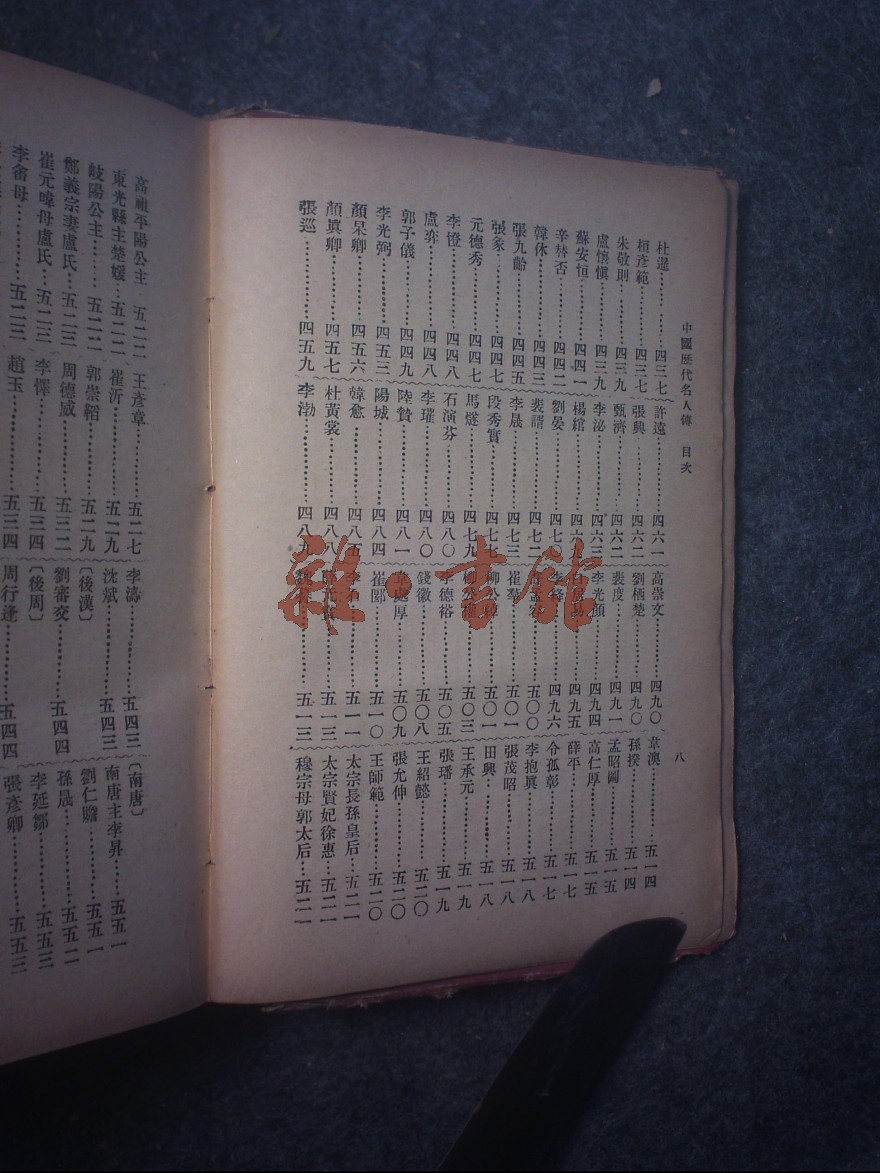 中國歷代名人傳 目次
八
杜暹……四三七
桓彥範……四三七
朱敬則……四三九
盧懷愼……四三九
蘇安恒……四四一
辛替否……四四二
韓休……四四三
張九齡……四四五
張象……四四七
元德秀……四四七
李憕……四四八
盧弈……四四八
郭子儀……四四九
李光弼……四五三
顏杲卿……四五六
顏眞卿……四五七
張巡……四五九
許遠……四六一
張興……四六二
甄濟……四六二
李泌……四六三
楊綰……四六
劉晏……四七
裴諝……四七二
李晟……四七三
段秀實……四七七
馬燧……四七九
石演芬……四八〇
李璀……四八〇
陸贄……四八一
陽城……四八四
韓愈……四八五
杜黃裳……四八八
李渤……四八九
高崇文……四九〇
劉栖楚……四九〇
裴度……四九一
李光顏……四九四
白居易……四九五
李絳……四九六
孟容……五〇〇
崔羣……五〇一
柳公綽……五〇一
柳公權……五〇三
李德裕……五〇五
錢徽……五〇八
韋處厚……五〇九
崔郾……五一〇
李……五一一
……五一三
魏……五一三
韋澳……五一四
孫揆……五一四
孟昭圖……五一五
高仁厚……五一五
薛平……五一七
令狐彰……五一七
李抱眞……五一八
張茂昭……五一八
田興……五一八
王承元……五一九
張璠……五一九
王紹懿……五二〇
張允伸……五二〇
王師範……五二〇
太宗長孫皇后……五二一
太宗賢妃徐惠……五二一
穆宗母郭太后……五二一
高祖平陽公主 五二二
東光縣主楚媛……五二二
岐陽公主……五二二
鄭義宗妻盧氏……五二三
崔元暐母盧氏……五二三
李畬母……五二三
王彥章……五二七
崔沂……五二九
郭崇韜……五二九
周德威……五三二
李懌……五三四
趙玉……五三四
李濤……五四三
沈斌……五四三
〔後漢〕
劉審交……五四四
〔後周〕
周行逢……五四四
〔南唐〕
南唐主李昇……五五一
劉仁贍……五五一
孫晟……五五二
李延鄒……五五三
張彥卿……五五三
雜·書館